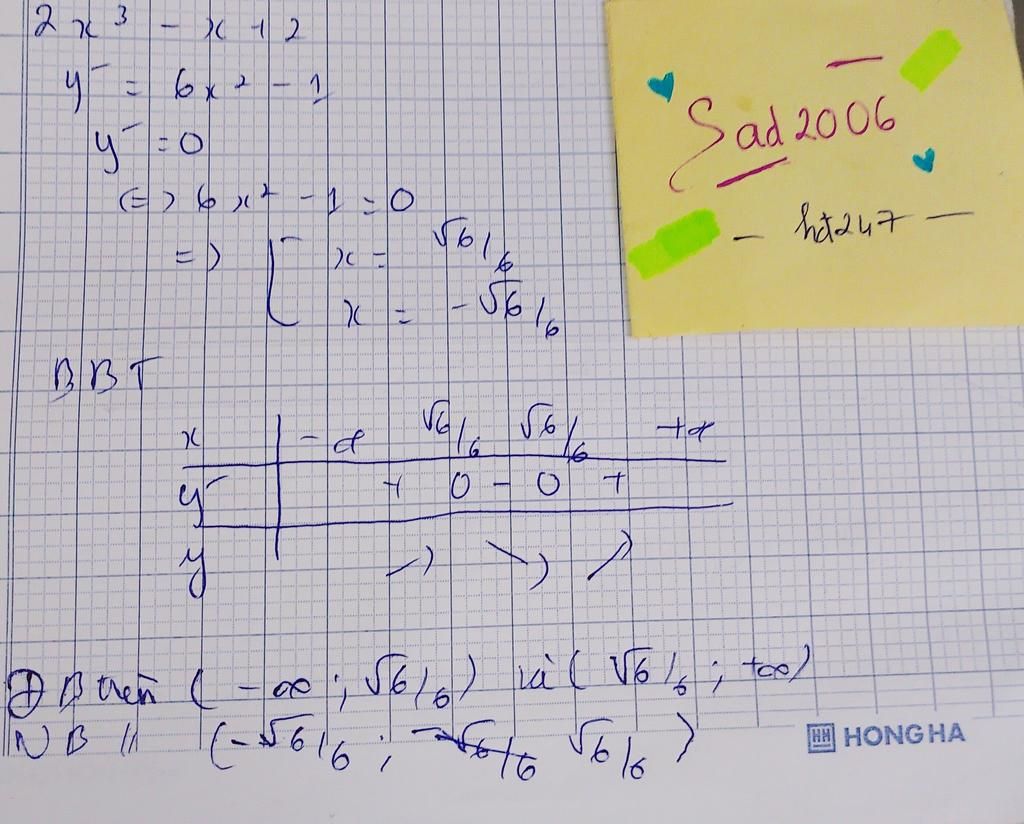 2x³ - x + 2
y' = 6x² - 1
y' = 0
<=> 6x² - 1 = 0
=> [ x = √6/6
x = -√6/6
BBT
x | -∞ √6/6 √6/6 +∞
y' | + 0 - 0 +
y | ↗ ↘ ↗
ĐB trên (-∞; √6/6) và (√6/6; +∞)
NB // (-√6/6; √6/6)
Sad2006
- hdt247 -
HH HONG HA